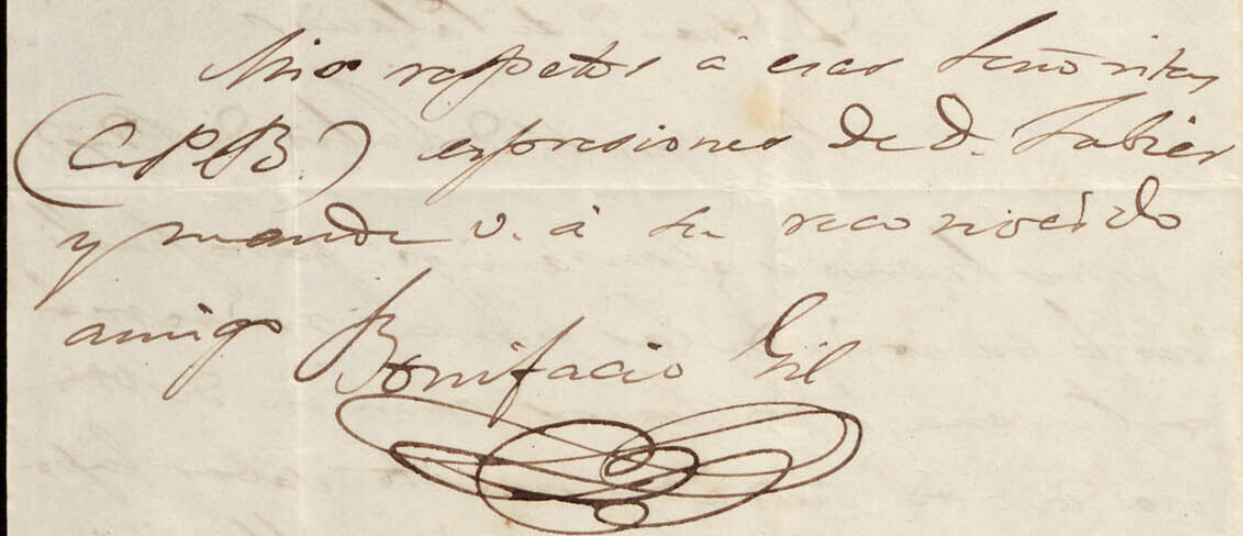 Mis respetos á esas Señoritas
(C. P. B.) espresiones de D. Fabier
y mande V. á su reconocido
amigo Bonifacio Gil